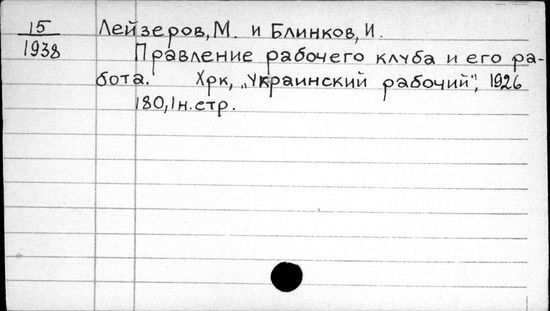 15
1938
Лейзеров, М. и Блинков, И.
Правление рабочего клуба и его ра-
бота. Хрк, „Украинский рабочий", 1926
180, 1н.стр.